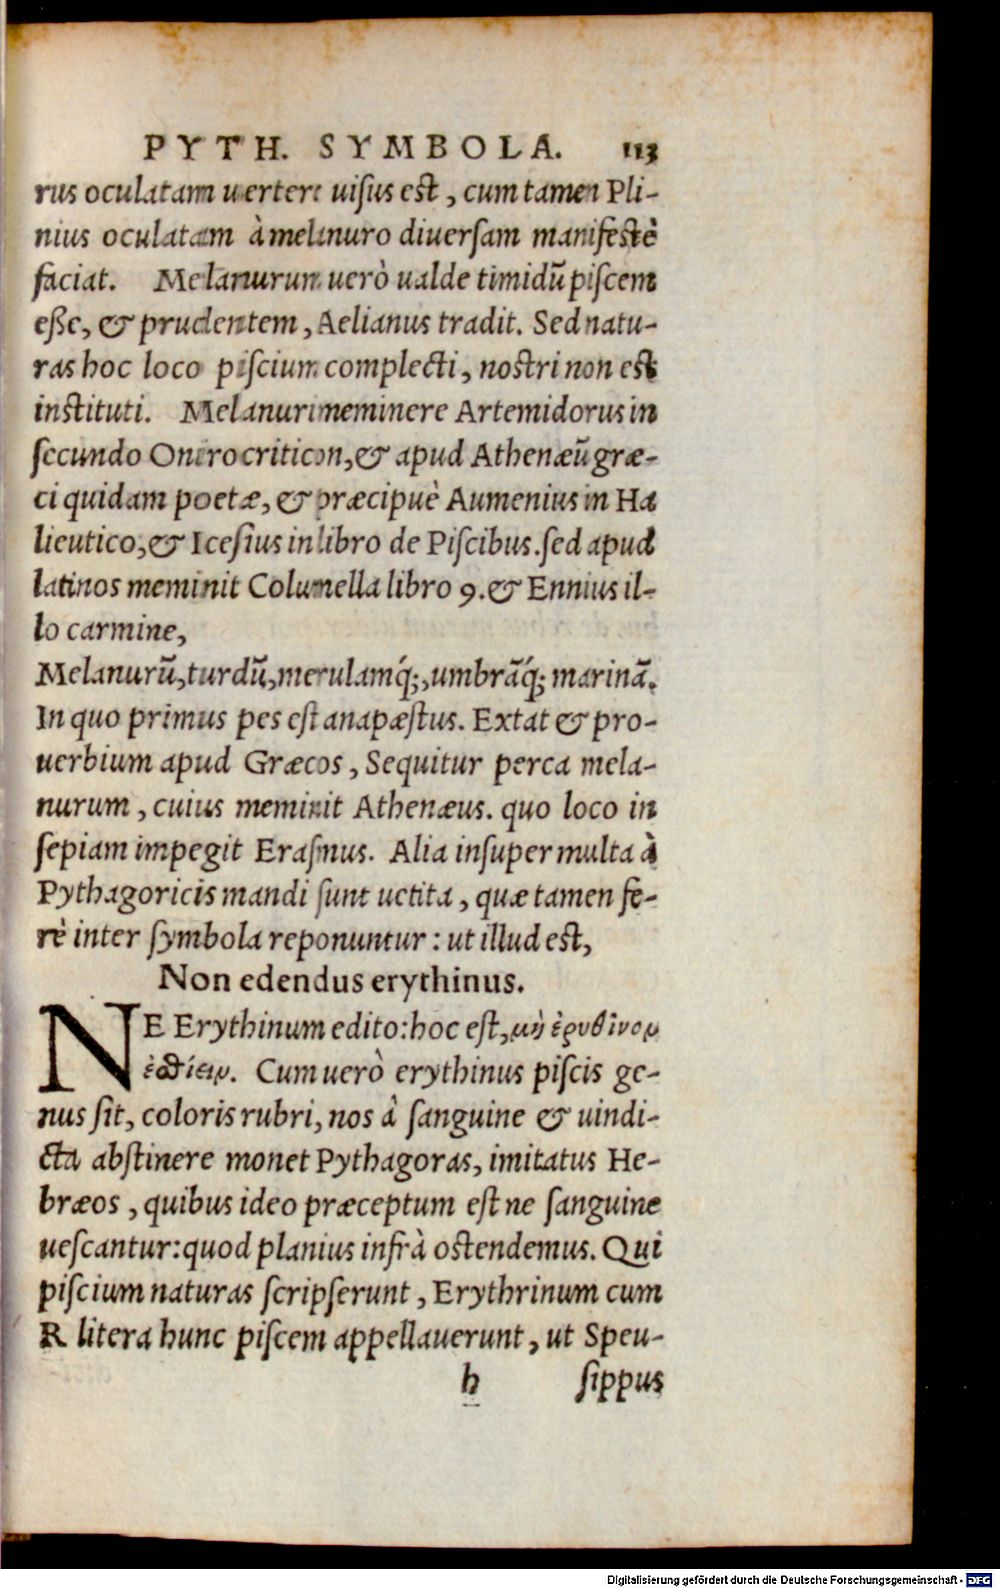 PYTH. SYMBOLA. 113
rus oculatam uertere uiſus est, cum tamen Pli-
nius oculatam à melanuro diuerſam manifestè
faciat. Melanurum uerò ualde timidũ piſcem
eßе, & prudentem, Aelianus tradit. Sed natu-
ras hoc loco piſcium complecti, nostri non est
instituti. Melanuri meminere Artemidorus in
ſecundo Onirocriticon, & apud Athenæũ græ-
ci quidam poetæ, & præcipuè Aumenius in Ha
lieutico, & Iceſius in libro de Piſcibus. ſed apud
latinos meminit Columella libro 9. & Ennius il-
lo carmine,
Melanurũ, turdũ, merulamq́;, umbrãq́; marinã.
In quo primus pes eſt anapæſtus. Extat & pro-
uerbium apud Græcos, Sequitur perca mela-
nurum, cuius meminit Athenæus. quo loco in
ſepiam impegit Eraſmus. Alia inſuper multa à
Pythagoricis mandi ſunt uetita, quæ tamen fe-
rè inter ſymbola reponuntur: ut illud est,
Non edendus erythinus.
NE Erythinum edito: hoc eſt, μὴ ἐρυθῖνον
ἐσθίειν. Cum uerò erythinus piſcis ge-
nus ſit, coloris rubri, nos à ſanguine & uindi-
cta abſtinere monet Pythagoras, imitatus He-
bræos, quibus ideo præceptum eſt ne ſanguine
ueſcantur: quod planius infrà ostendemus. Qui
piſcium naturas ſcripſerunt, Erythrinum cum
R litera hunc piſcem appellauerunt, ut Speu-
h ſippus
Digitalisierung gefördert durch die Deutsche Forschungsgemeinschaft - DFG